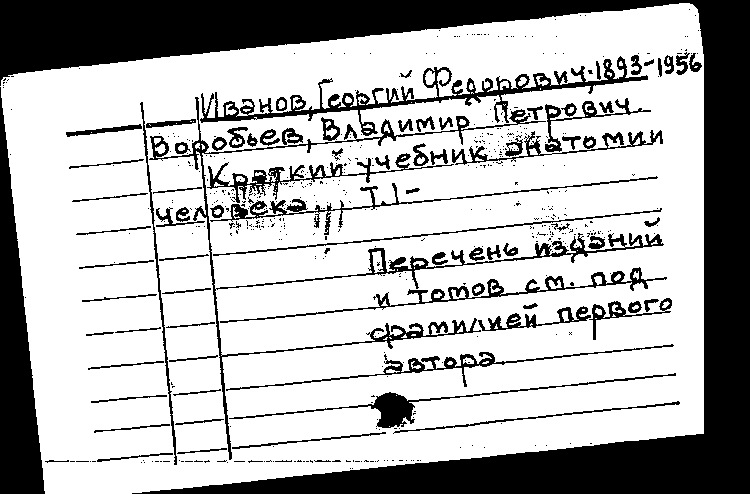 Иванов, Георгий Федорович. 1893-1956
Воробьев, Владимир Петрович.
Краткий учебник анатомии
человека Т.1-
Перечень изданий
и томов см. под
фамилией первого
автора.